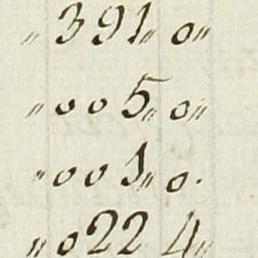 „ 391„ 0„
„ 005„ 0„
„ 001„ 0.
„ 022 4„